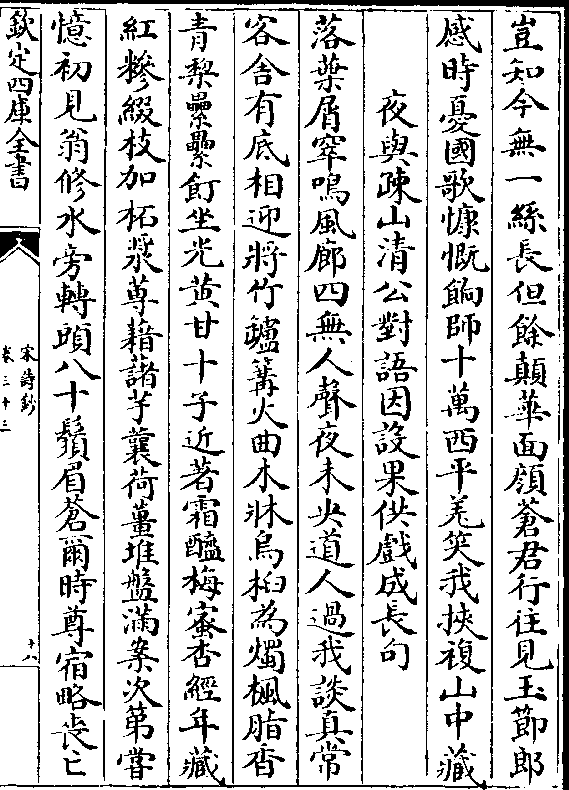 豈知今無一絲長但餘顛華面顔蒼君行往見玉節郎
感時憂國歌慷慨餉師十萬西平羌笑我挾複山中藏
夜與疎山清公對語因設果供戲成長句
落葉屑窣鳴風廊四無人聲夜未央道人過我談真常
客舍有底相迎將竹罏篝火曲木牀烏桕為燭楓脂香
青棃纍纍飣坐光黄甘十子近著霜醯梅蜜杏經年藏
紅糝綴枝加柘漿蓴藉藷芋蘘荷薑堆盤滿案次第嘗
憶初見翁修水旁轉頭八十鬚眉蒼爾時尊宿略喪亡
欽定四庫全書
宋詩鈔
卷三十三
十八